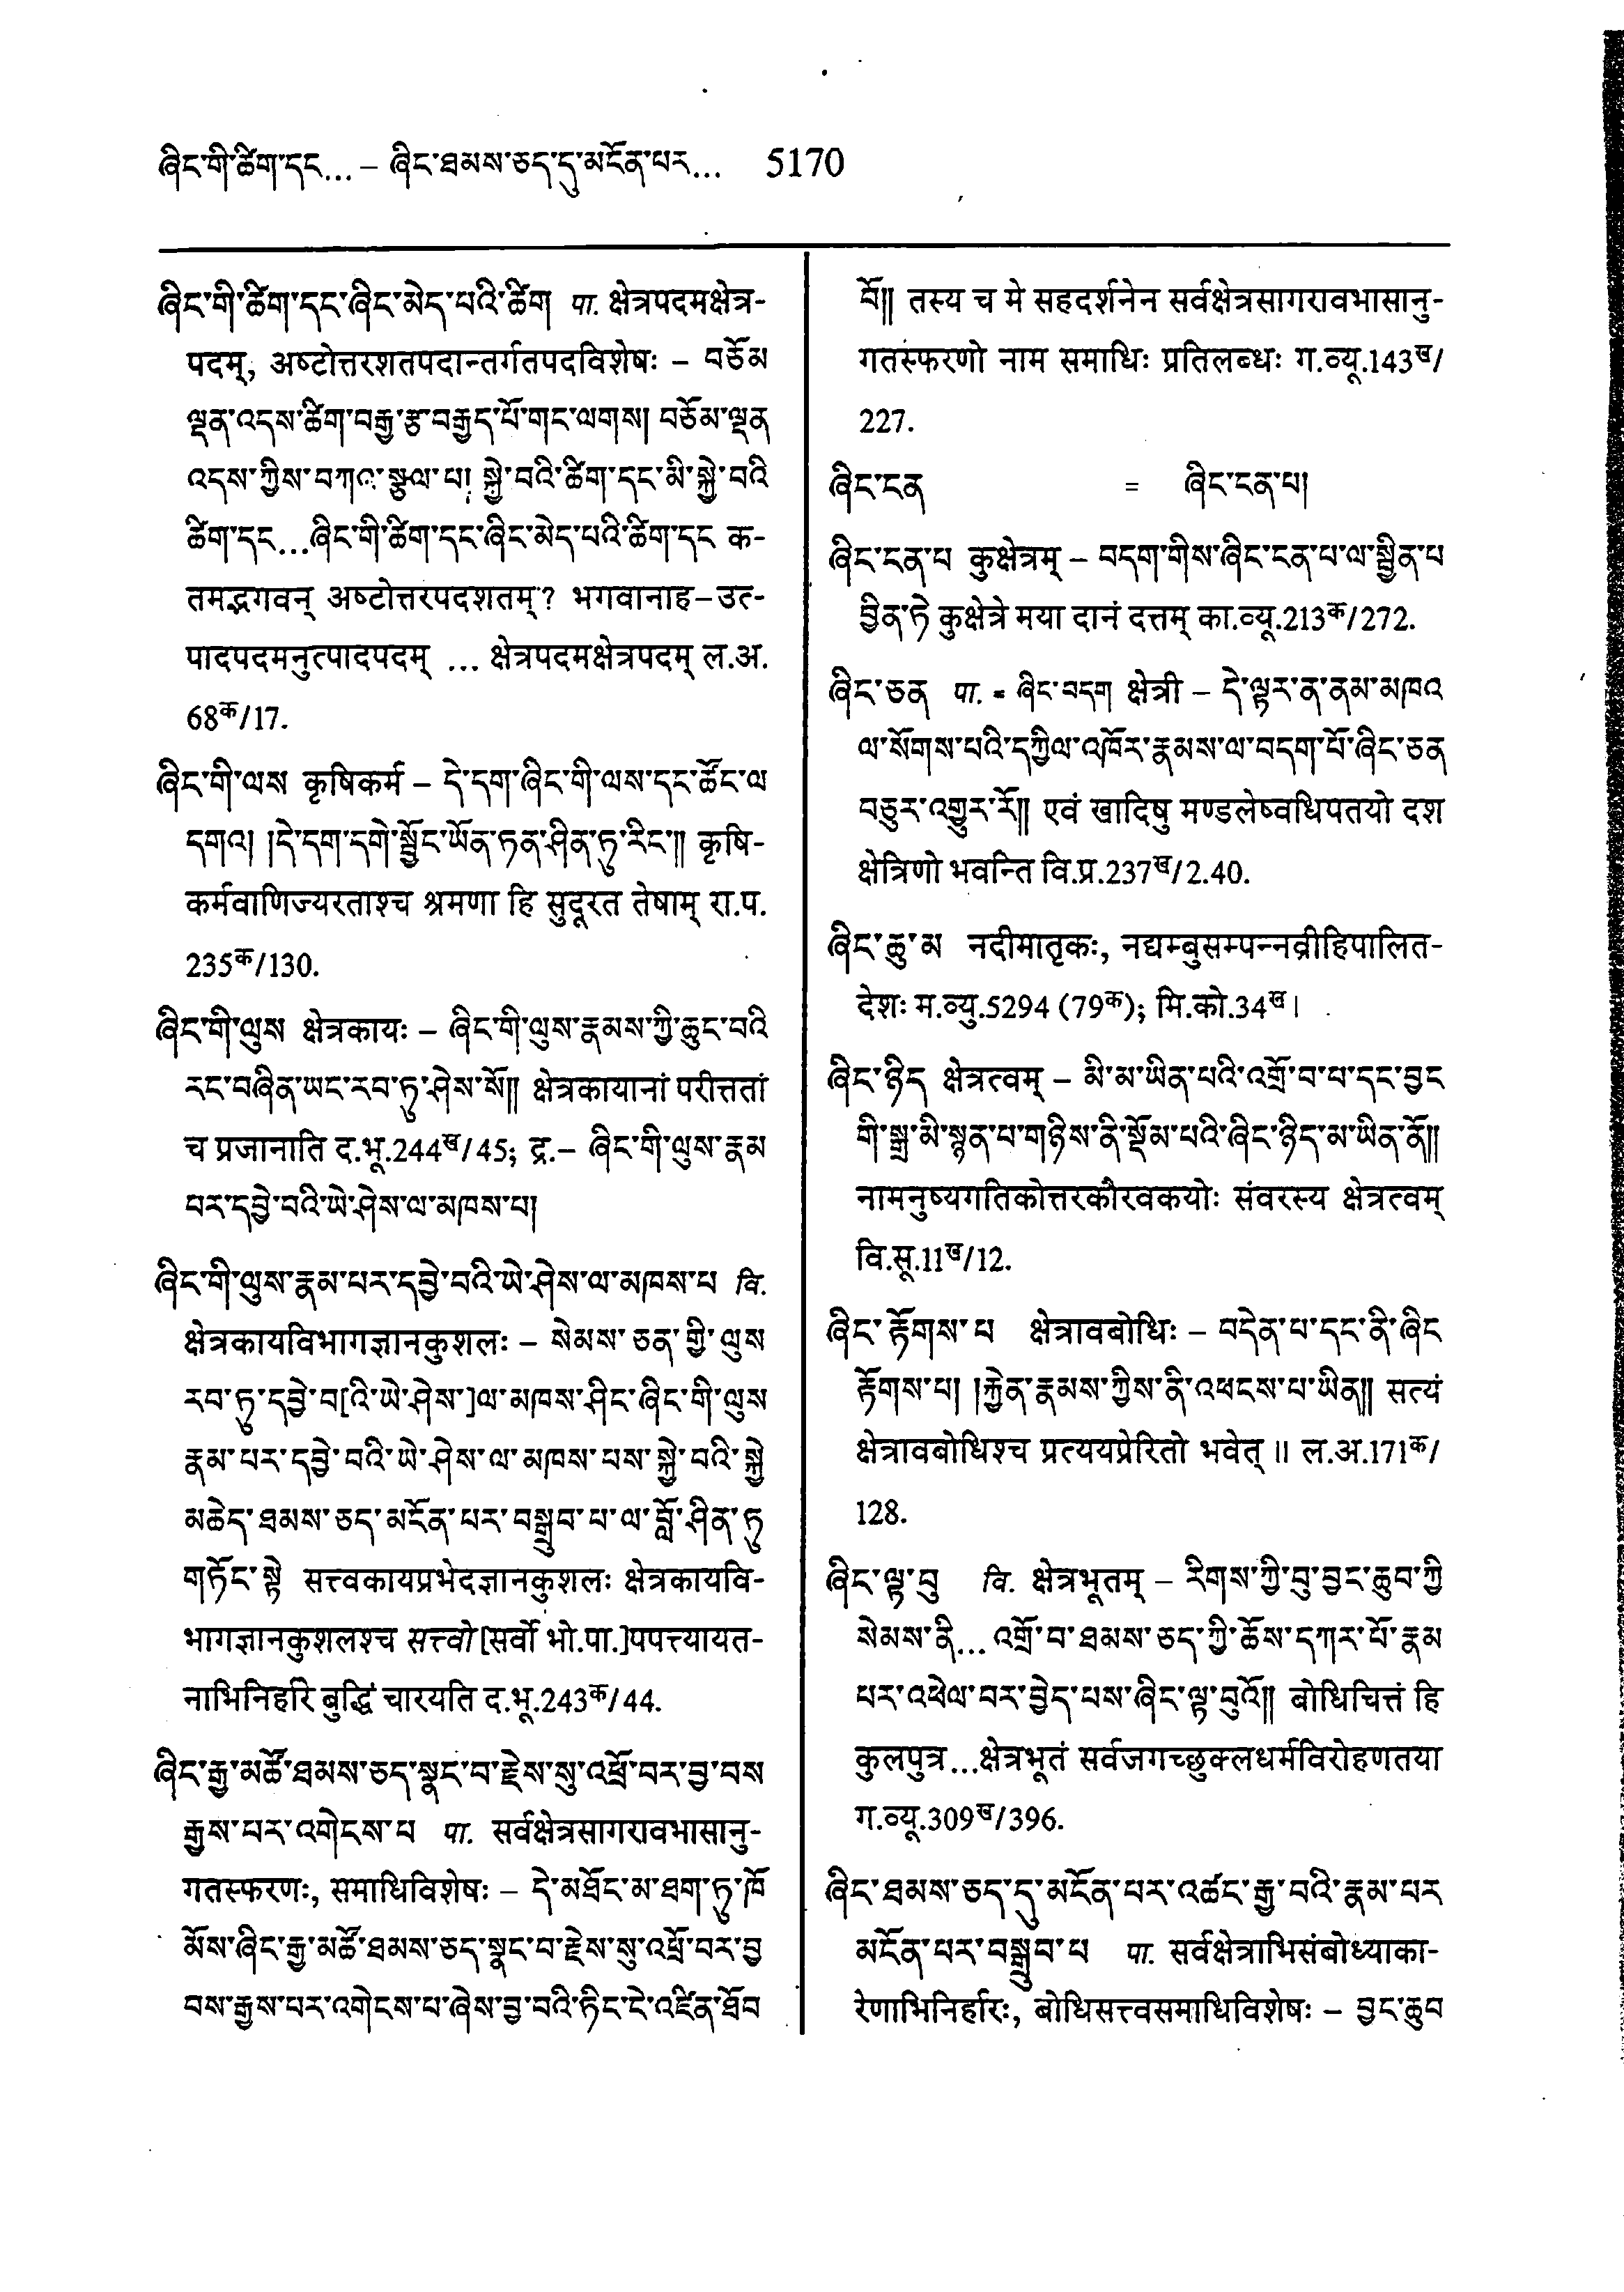 ཞིང་གི་ཚིག་དང... – ཞིང་ཐམས་ཅད་དུ་མངོན་པར... 5170
ཞིང་གི་ཚིག་དང་ཞིང་མེད་པའི་ཚིག པा. क्षेत्रपदमक्षेत्र-
पदम्, अष्टोत्तरशतपदान्तर्गतपदविशेषः – བཅོམ
ལྡན་འདས་ཚིག་བརྒྱ་རྩ་བརྒྱད་པོ་གང་ལགས། བཅོམ་ལྡན
འདས་ཀྱིས་བཀའ་སྩལ་པ། སྐྱེ་བའི་ཚིག་དང་མི་སྐྱེ་བའི
ཚིག་དང...ཞིང་གི་ཚིག་དང་ཞིང་མེད་པའི་ཚིག་དང क-
तमद्भगवन् अष्टोत्तरपदशतम्? भगवानाह–उत्-
पादपदमनुत्पादपदम् ... क्षेत्रपदमक्षेत्रपदम् ल.अ.
68क/17.
ཞིང་གི་ལས कृषिकर्म – དེ་དག་ཞིང་གི་ལས་དང་ཚོང་ལ
དགའ། །དེ་དག་དགེ་སྦྱོང་ཡོན་ཏན་ཤིན་ཏུ་རིང་॥ कृषि-
कर्मवाणिज्यरताश्च श्रमणा हि सुदूरत तेषाम् रा.प.
235क/130.
ཞིང་གི་ལུས क्षेत्रकायः – ཞིང་གི་ལུས་རྣམས་ཀྱི་ཆུང་བའི
རང་བཞིན་ཡང་རབ་ཏུ་ཤེས་སོ॥ क्षेत्रकायानां परीत्ततां
च प्रजानाति द.भू.244ख/45; द्र.– ཞིང་གི་ལུས་རྣམ
པར་དབྱེ་བའི་ཡེ་ཤེས་ལ་མཁས་པ།
ཞིང་གི་ལུས་རྣམ་པར་དབྱེ་བའི་ཡེ་ཤེས་ལ་མཁས་པ वि.
क्षेत्रकायविभागज्ञानकुशलः – སེམས་ཅན་གྱི་ལུས
རབ་ཏུ་དབྱེ་བ[འི་ཡེ་ཤེས་]ལ་མཁས་ཤིང་ཞིང་གི་ལུས
རྣམ་པར་དབྱེ་བའི་ཡེ་ཤེས་ལ་མཁས་པས་སྐྱེ་བའི་སྐྱེ
མཆེད་ཐམས་ཅད་མངོན་པར་བསྒྲུབ་པ་ལ་བློ་ཤིན་ཏུ
གཏོང་སྟེ सत्त्वकायप्रभेदज्ञानकुशलः क्षेत्रकायवि-
भागज्ञानकुशलश्च सत्त्वो [सर्वो भो.पा.]पपत्त्यायत-
नाभिनिर्हारे बुद्धिं चारयति द.भू.243क/44.
ཞིང་རྒྱ་མཚོ་ཐམས་ཅད་སྣང་བ་རྗེས་སུ་འཕྲོ་བར་བྱ་བས
རྒྱས་པར་འགེངས་པ पा. सर्वक्षेत्रसागरावभासानु-
गतस्फरणः, समाधिविशेषः – དེ་མཐོང་མ་ཐག་ཏུ་ཁོ
མོས་ཞིང་རྒྱ་མཚོ་ཐམས་ཅད་སྣང་བ་རྗེས་སུ་འཕྲོ་བར་བྱ
བས་རྒྱས་པར་འགེངས་པ་ཞེས་བྱ་བའི་ཏིང་ངེ་འཛིན་ཐོབ
བོ॥ तस्य च मे सहदर्शनेन सर्वक्षेत्रसागरावभासानु-
गतस्फरणो नाम समाधिः प्रतिलब्धः ग.व्यू.143ख/
227.
ཞིང་ངན = ཞིང་ངན་པ།
ཞིང་ངན་པ कुक्षेत्रम् – བདག་གིས་ཞིང་ངན་པ་ལ་སྦྱིན་པ
བྱིན་ཏེ कुक्षेत्रे मया दानं दत्तम् का.व्यू.213क/272.
ཞིང་ཅན पा. = ཞིང་བདག क्षेत्री – དེ་ལྟར་ན་ནམ་མཁའ
ལ་སོགས་པའི་དཀྱིལ་འཁོར་རྣམས་ལ་བདག་པོ་ཞིང་ཅན
བཅུར་འགྱུར་རོ॥ एवं खादिषु मण्डलेष्वधिपतयो दश
क्षेत्रिणो भवन्ति वि.प्र.237ख/2.40.
ཞིང་ཆུ་མ नदीमातृकः, नद्यम्बुसम्पन्नव्रीहिपालित-
देशः म.व्यु.5294 (79क); मि.को.34ख।
ཞིང་ཉིད क्षेत्रत्वम् – མི་མ་ཡིན་པའི་འགྲོ་བ་པ་དང་བྱང
གི་སྒྲ་མི་སྙན་པ་གཉིས་ནི་སྡོམ་པའི་ཞིང་ཉིད་མ་ཡིན་ནོ॥
नामनुष्यगतिकोत्तरकौरवकयोः संवरस्य क्षेत्रत्वम्
वि.सू.11ख/12.
ཞིང་རྟོགས་པ क्षेत्रावबोधिः – བདེན་པ་དང་ནི་ཞིང
རྟོགས་པ། །རྐྱེན་རྣམས་ཀྱིས་ནི་འཕངས་པ་ཡིན॥ सत्यं
क्षेत्रावबोधिश्च प्रत्ययप्रेरितो भवेत् ॥ ल.अ.171क/
128.
ཞིང་ལྟ་བུ वि. क्षेत्रभूतम् – རིགས་ཀྱི་བུ་བྱང་ཆུབ་ཀྱི
སེམས་ནི... འགྲོ་བ་ཐམས་ཅད་ཀྱི་ཆོས་དཀར་པོ་རྣམ
པར་འཕེལ་བར་བྱེད་པས་ཞིང་ལྟ་བུའོ॥ बोधिचित्तं हि
कुलपुत्र ...क्षेत्रभूतं सर्वजगच्छुक्लधर्मविरोहणतया
ग.व्यू.309ख/396.
ཞིང་ཐམས་ཅད་དུ་མངོན་པར་འཚང་རྒྱ་བའི་རྣམ་པར
མངོན་པར་བསྒྲུབ་པ पा. सर्वक्षेत्राभिसंबोध्याका-
रेणाभिनिर्हारः, बोधिसत्त्वसमाधिविशेषः – བྱང་ཆུབ